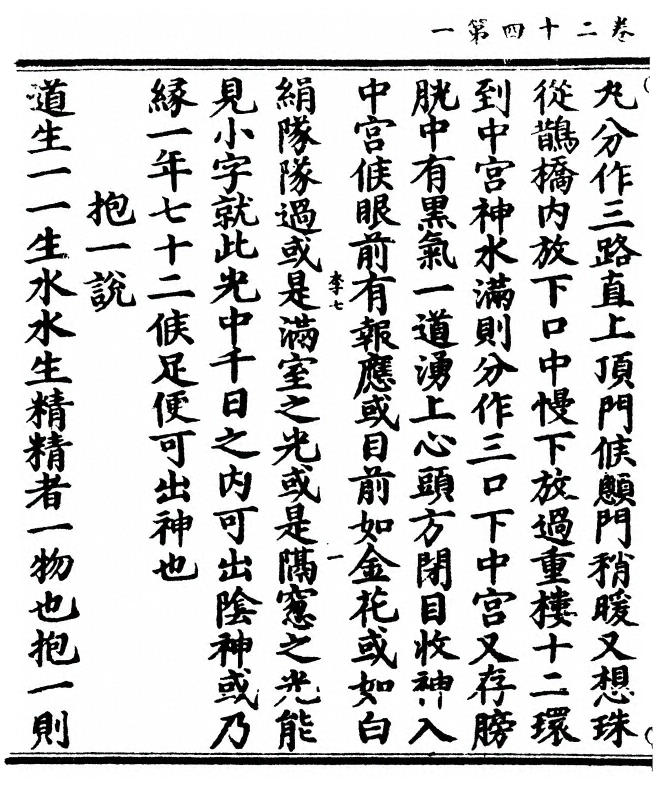 卷二十四第一
丸分作三路直上頂門候顖門稍暖又想珠
從鵲橋内放下口中慢下放過重樓十二環
到中宮神水滿則分作三口下中宮又存膀
胱中有黑氣一道湧上心頭方閉目收神入
中宮候眼前有報應或目前如金花或如白
李七
一
絹隊隊過或是滿室之光或是隔窓之光能
見小字就此光中千日之内可出陰神或乃
緣一年七十二候足便可出神也
抱一說
道生一一生水水生精精者一物也抱一則